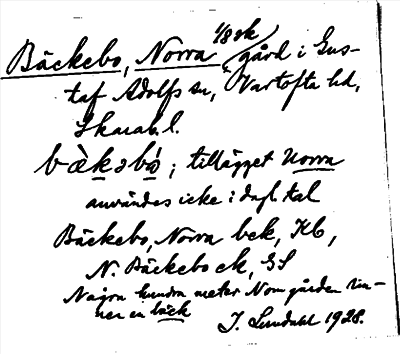 Bäckebo, Norra 1/8 sk gård i Gus-
taf Adolfs sn, Vartofta hd,
Skarab. l.
bàkəbó; tillägget Norra
användes icke i dagl. tal
Bäckebo, Norra bek, Kb,
N. Bäckebo ek, GS
Några hundra meter N om gården rin-
ner en bäck
J. Lundahl 1928.